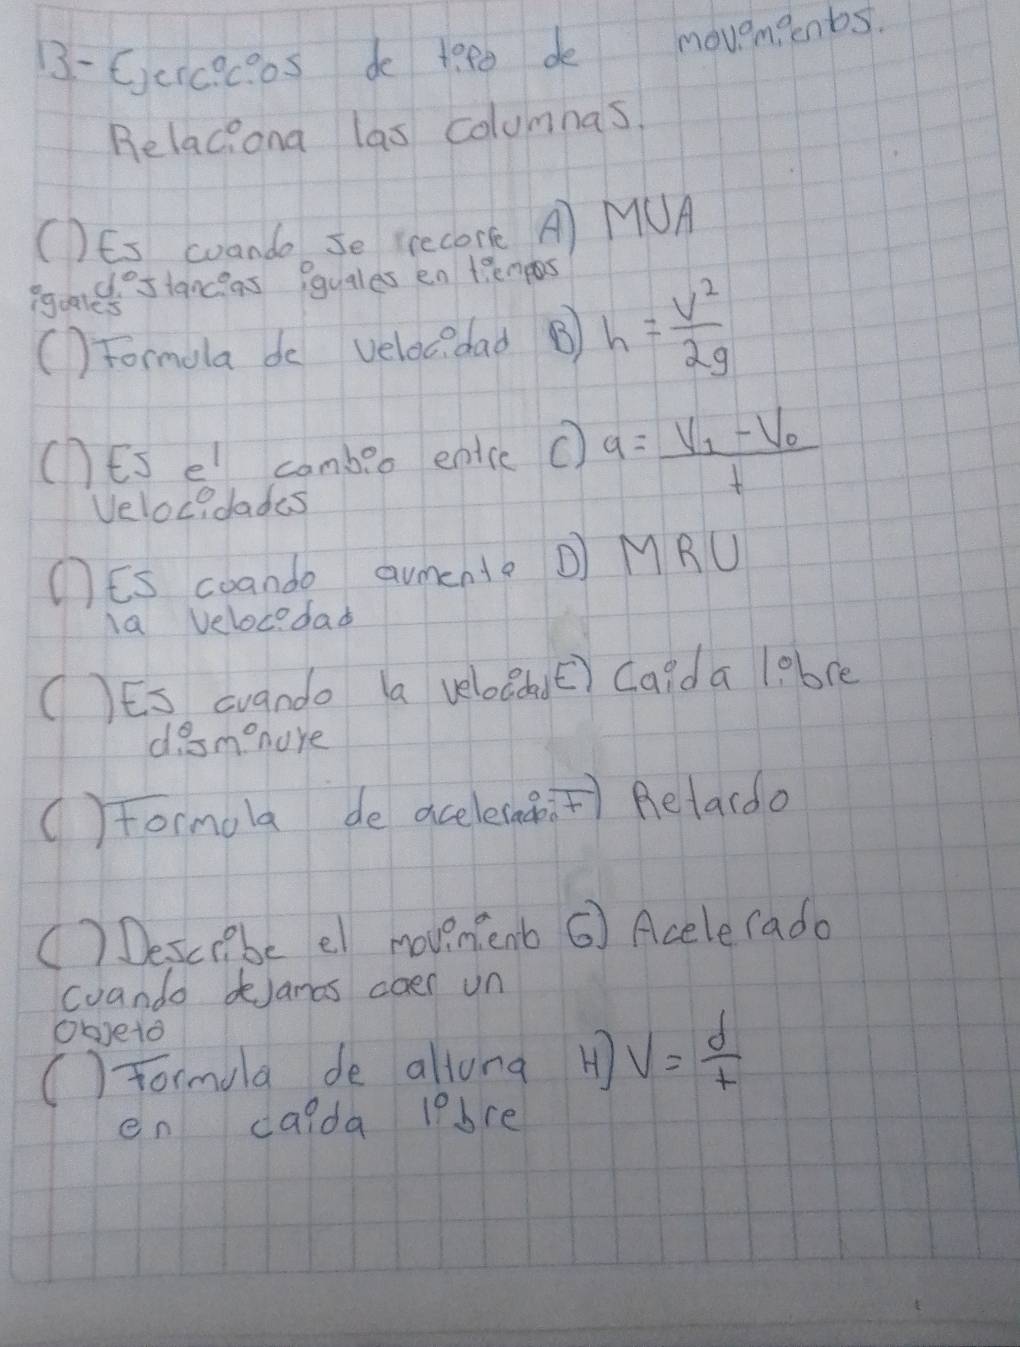 13- Ejercicios de tipo de movimientos.
Relaciona las columnas.
( ) Es cuando se recorre A) MUA
distancias iguales en tiempos
iguales
( ) Formula de velocidad B) h = V²/2g
( ) Es el cambio entre C) a = V₁ - V₀/t
velocidades
( ) Es cuando aumenta D) MRU
la velocidad
( ) Es cuando la velocidad E) Caida libre
disminuye
( ) Formula de aceleración F) Retardo
( ) Describe el movimiento G) Acelerado
cuando dejamos caer un
objeto
( ) Formula de altura H) V = d/t
en caida libre